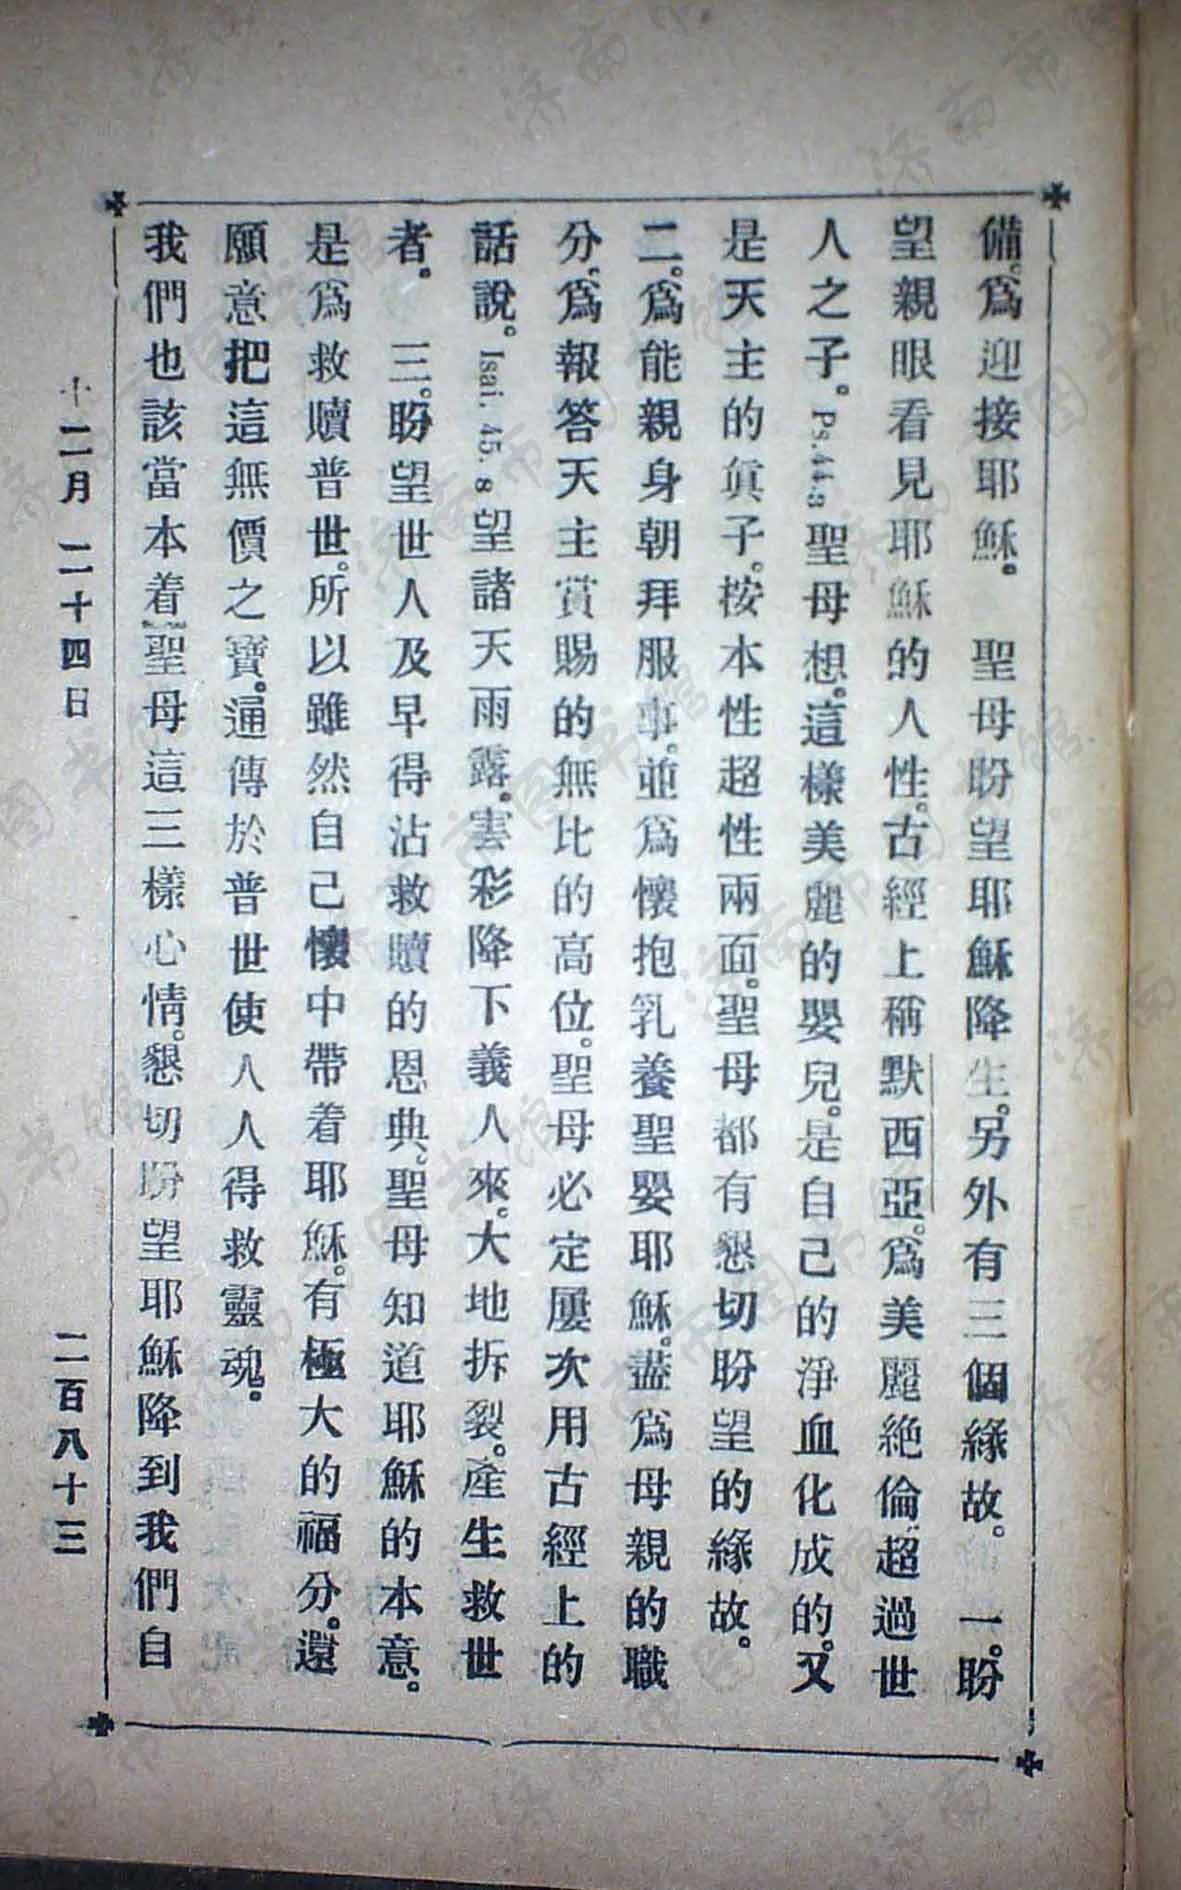 備爲迎接耶穌。 聖母盼望耶穌降生。另外有三個緣故。 一。盼
望親眼看見耶穌的人性。古經上稱默西亞。爲美麗絕倫。超過世
人之子。Ps. 44. 3聖母想。這樣美麗的嬰兒。是自己的淨血化成的。又
是天主的眞子。按本性超性兩面。聖母都有懇切盼望的緣故。
二。爲能親身朝拜服事。並爲懷抱乳養聖嬰耶穌。盡爲母親的職
分。爲報答天主賞賜的無比的高位。聖母必定屢次用古經上的
話說。Isai. 45. 8望諸天雨露。雲彩降下義人來。大地拆裂。產生救世
者。 三。盼望世人及早得沾救贖的恩典。聖母知道耶穌的本意。
是爲救贖普世。所以雖然自己懷中帶着耶穌。有極大的福分。還
願意把這無價之寶。通傳於普世使人人得救靈魂。
我們也該當本着聖母這三樣心情。懇切盼望耶穌降到我們自
十二月二十四日 二百八十三